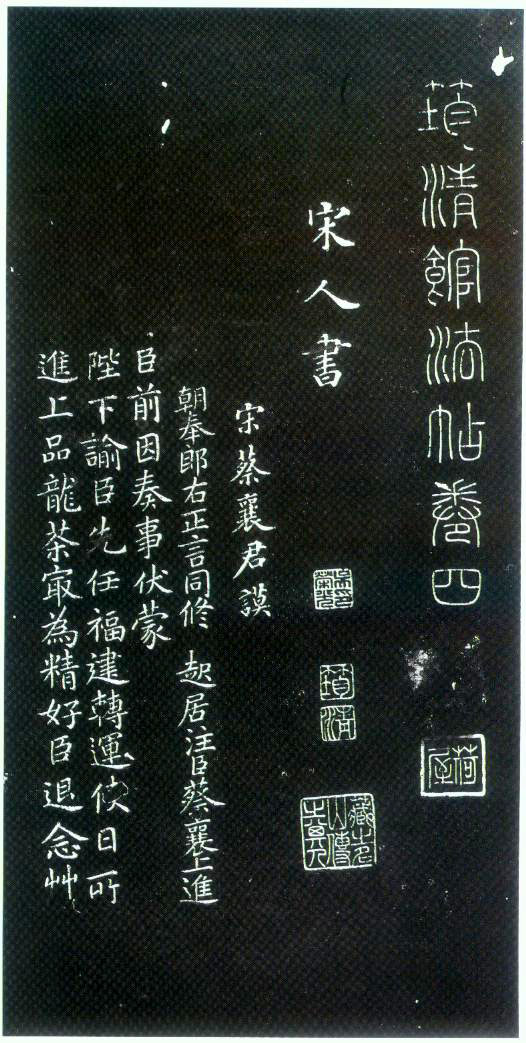 筠清館法帖卷四
荷屋
宋人書
筠清
宋蔡襄君謨
朝奉郎右正言同修 起居注臣蔡襄上進
臣前因奏事伏蒙
陛下諭臣先任福建轉運使日所
進上品龍茶㝡為精好臣退念艸